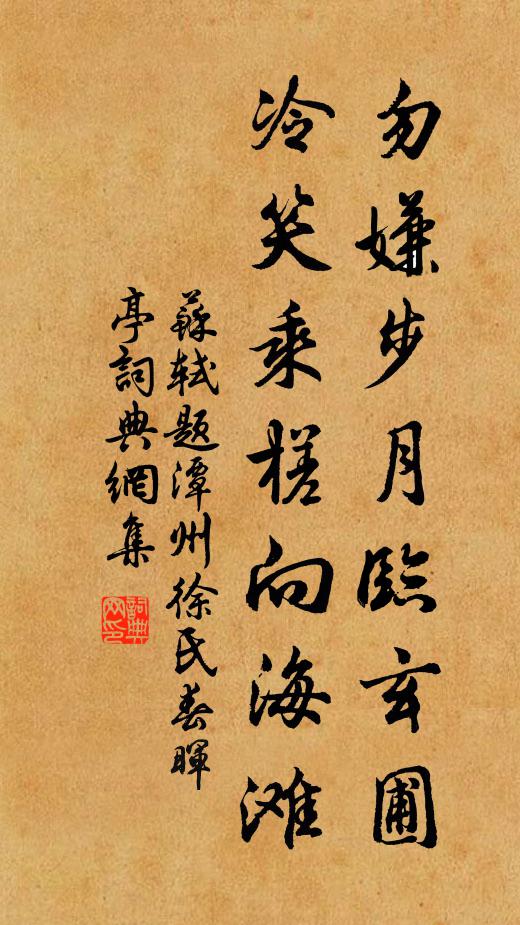 勿嫌步月臨玄圃
冷笑乘槎向海滩
蘇轼题潭州徐氏春暉
亭詞典網集
詞典
网印